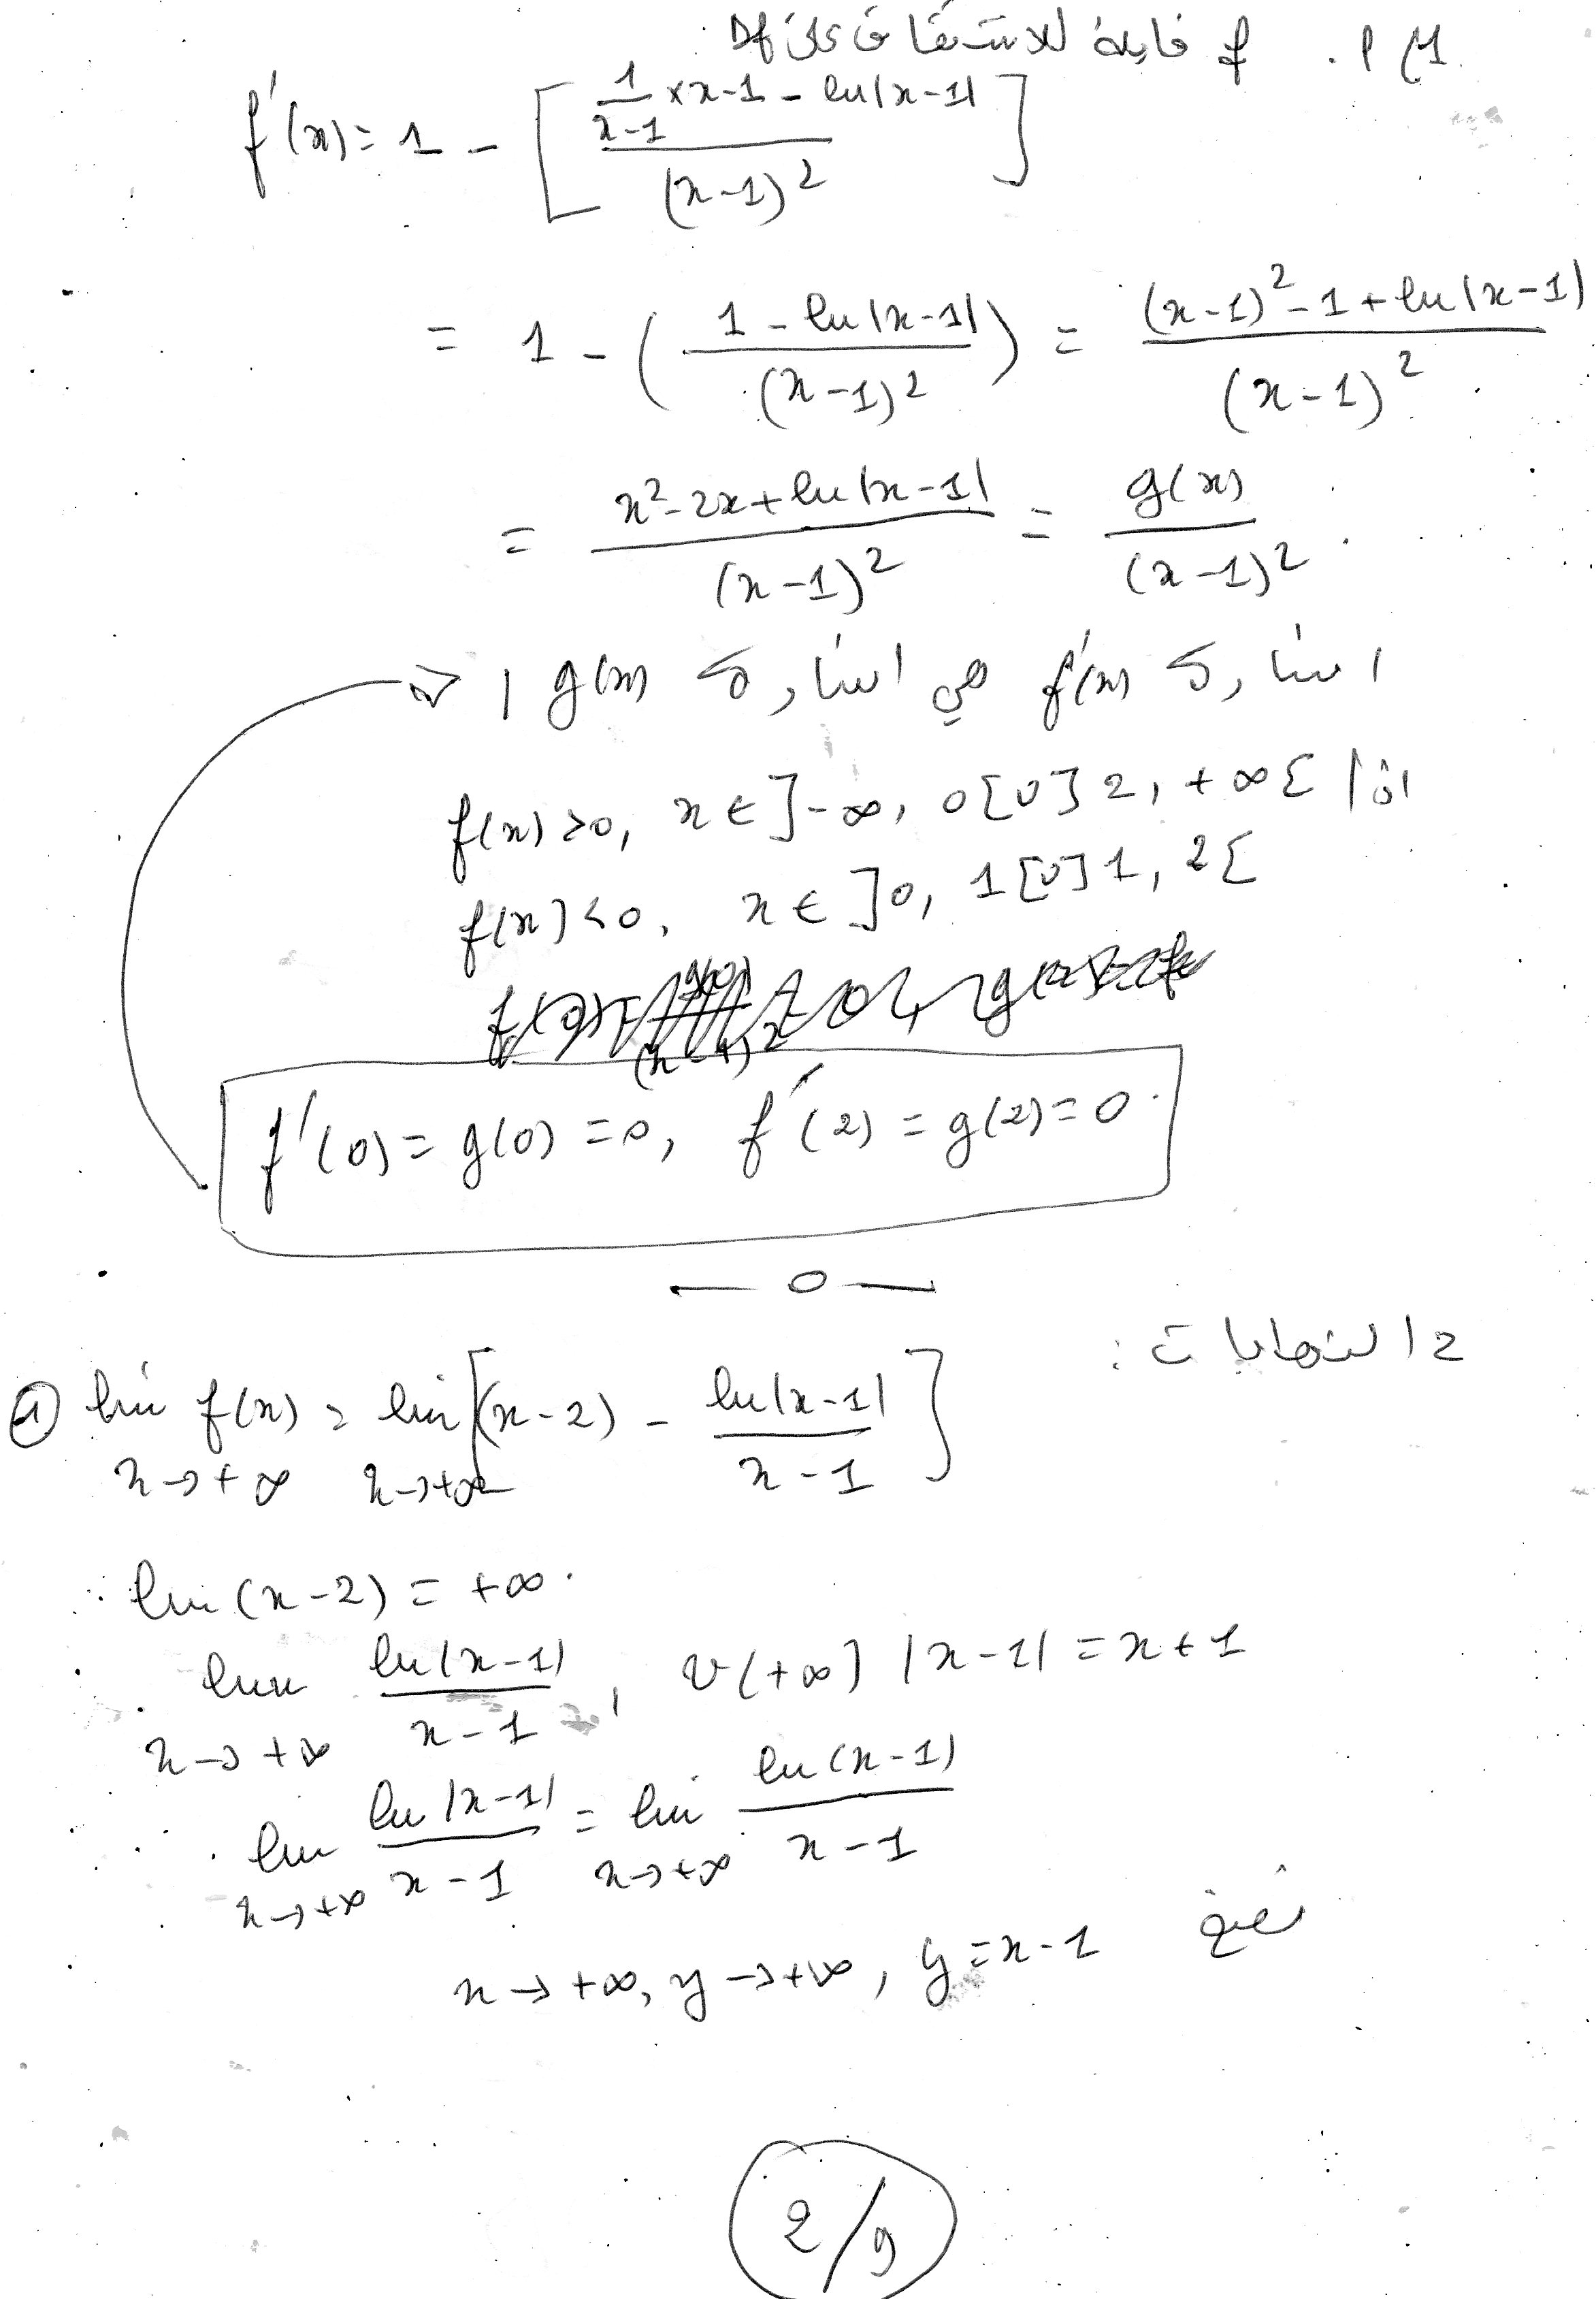 1) M . f قابلة للاشتقاق على Df
f'(x) = 1 - [ (1/(x-1) × x-1 - ln|x-1|) / (x-1)² ]
= 1 - ( (1 - ln|x-1|) / (x-1)² ) = ((x-1)² - 1 + ln|x-1|) / (x-1)²
= (x² - 2x + ln|x-1|) / (x-1)² = g(x) / (x-1)² .
اشارة f'(x) هي اشارة g(x) ,
اذا f(x) > 0, x ∈ ]-∞, 0[ ∪ ]2, +∞[
f(x) < 0, x ∈ ]0, 1[ ∪ ]1, 2[
f'(0) = g(0) = 0, f'(2) = g(2) = 0 .
— 0 —
2) النهايات :
① lim f(x) = lim [ (x-2) - ln|x-1| / (x-1) ]
x→+∞ x→+∞
lim (x-2) = +∞ .
lim ln|x-1| / (x-1) , v(+∞) |x-1| = x+1
x→+∞
lim ln|x-1| / (x-1) = lim ln(x-1) / (x-1)
x→+∞ x→+∞
نضع y = x-1 , x→+∞, y→+∞
2/9